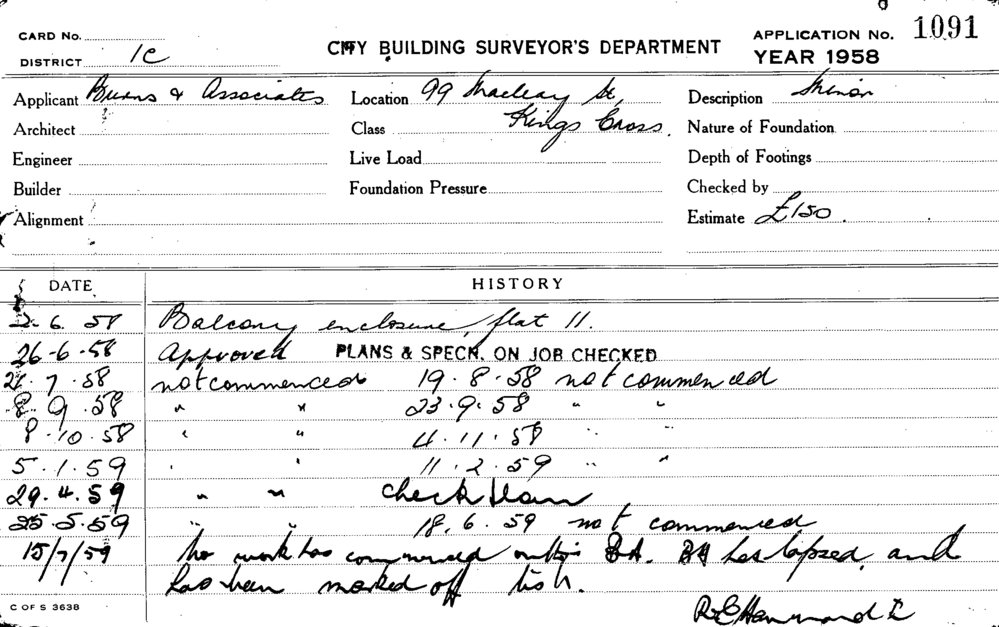 CARD No.
DISTRICT 1C
CITY BUILDING SURVEYOR'S DEPARTMENT
APPLICATION No. 1091
YEAR 1958
Applicant Burns & Associates Location 99 Macleay St, Description Minor
Architect Class Kings Cross. Nature of Foundation
Engineer Live Load Depth of Footings
Builder Foundation Pressure Checked by
Alignment Estimate £150.
DATE HISTORY
2. 6. 58 Balcony enclosure, flat 11.
26-6-58 Approved PLANS & SPECN. ON JOB CHECKED
21. 7. 58 not commenced 19. 8. 58 not commenced
8. 9. 58 " " 23. 9. 58 " "
8. 10. 58 " " 4. 11. 58 " "
5. 1. 59 " " 11. 2. 59 " "
29. 4. 59 " " check
25. 5. 59 " " 18. 6. 59 not commenced
15/7/59 No work has commenced on this BA. BA has lapsed and
has been marked off list.
C OF S 3638